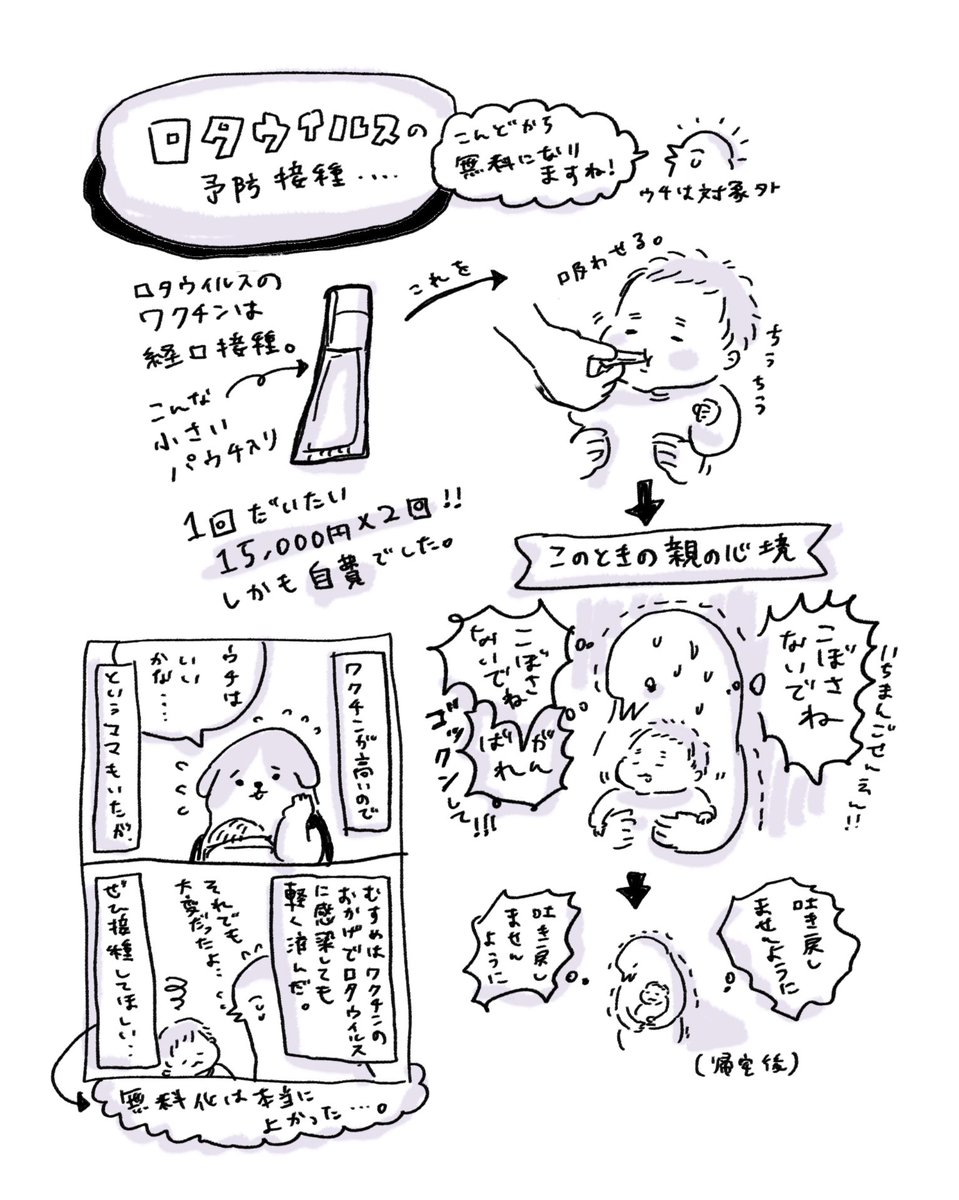 ロタウイルスの
予防接種....
こんどから
無料になり
ますね!
ウチは対象外
ロタウイルスの
ワクチンは
経口接種。
こんな
小さい
パウチ入り
これを
吸わせる。
ちう
ちう
1回だいたい
15,000円×2回!!
しかも自費でした。
このときの親の心境
こぼさ
ないでね
いちまんごせんえん!!
こぼさ
ないでね
がん
ばれ
ゴックンして!!!
吐き戻し
ませんように
吐き戻し
ません
ように
(帰宅後)
ワクチンが高いので
ウチは
いい
かな....
というママもいたが、
むすめはワクチンの
おかげでロタウイルス
に感染しても
軽く済んだ。
それでも
大変だったよ...
ぜひ接種してほしい...
無料化は本当に
よかった...。